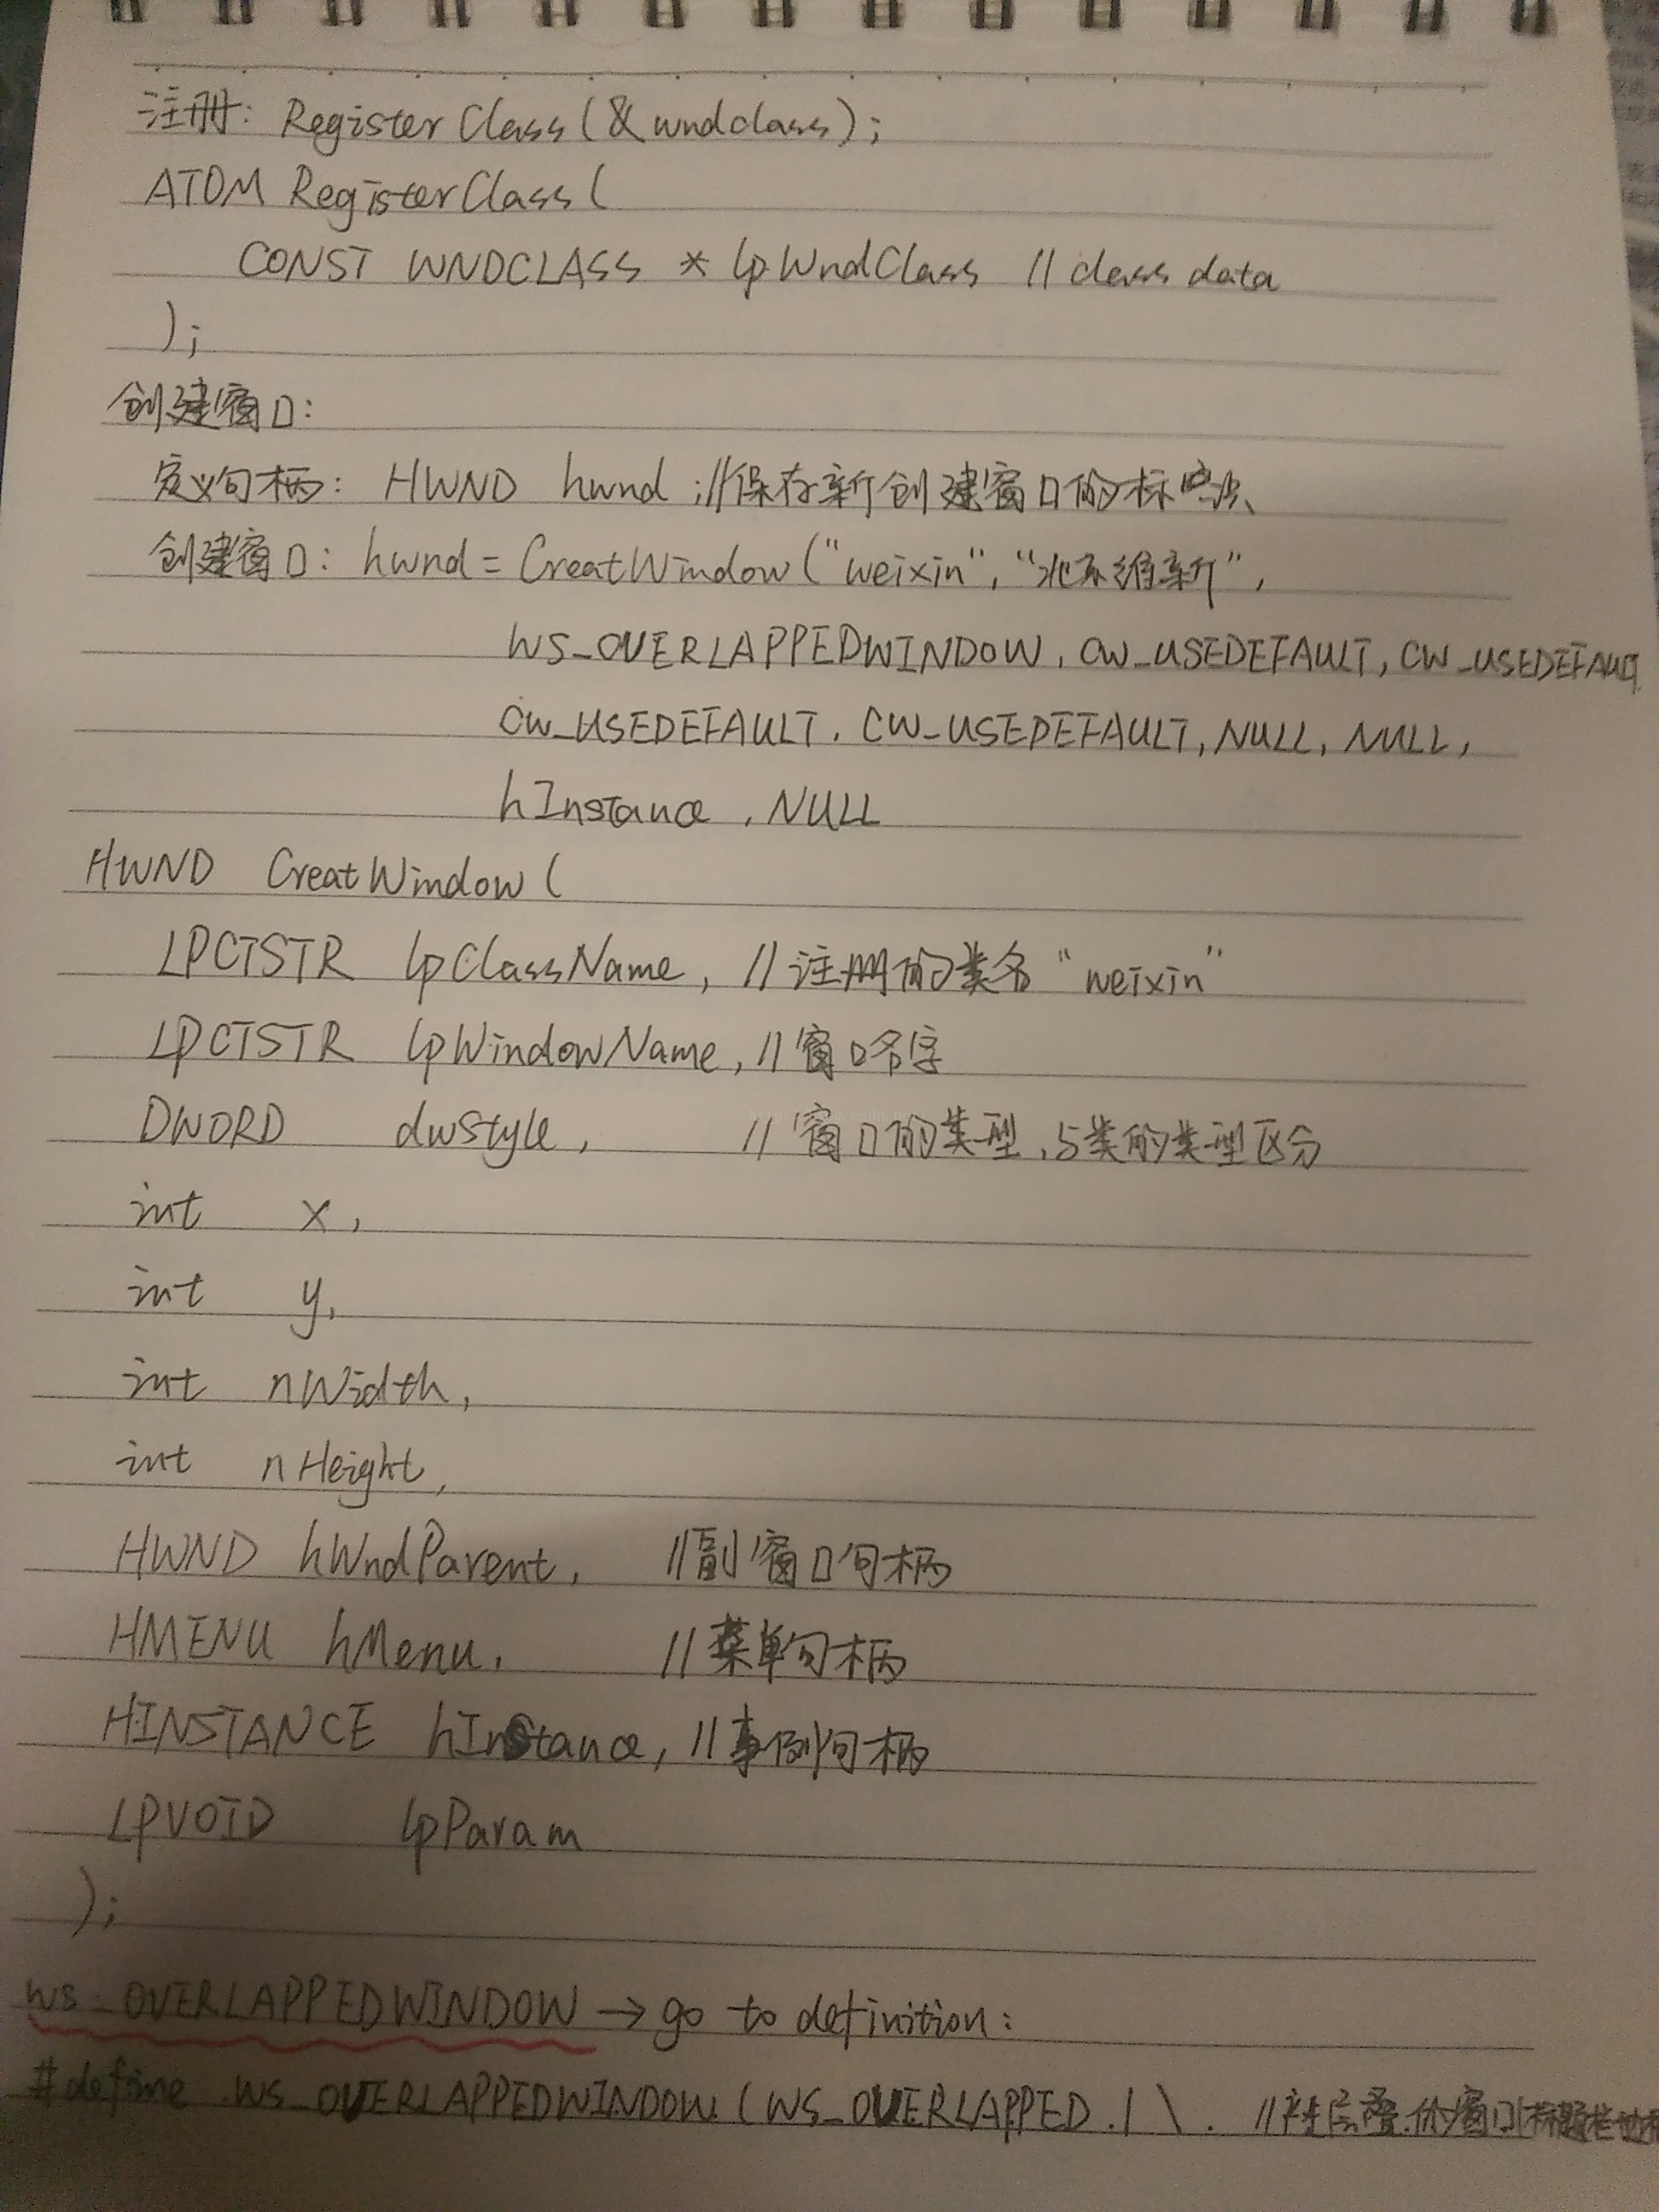 注册: RegisterClass(&wndclass);
ATOM RegisterClass(
CONST WNDCLASS * lpWndClass //class data
);
创建窗口:
定义句柄: HWND hwnd ;//保存新创建窗口的标识
创建窗口: hwnd = CreatWindow("weixin", "北京维新",
WS_OVERLAPPEDWINDOW, CW_USEDEFAULT, CW_USEDEFAULT,
CW_USEDEFAULT, CW_USEDEFAULT, NULL, NULL,
hInstance, NULL
HWND CreatWindow(
LPCTSTR lpClassName, //注册的类名"weixin"
LPCTSTR lpWindowName, //窗口名字
DWORD dwStyle, //窗口的类型,与类的类型区分
int x,
int y,
int nWidth,
int nHeight,
HWND hWndParent, //副窗口句柄
HMENU hMenu, //菜单句柄
HINSTANCE hInstance, //事例句柄
LPVOID lpParam
);
WS_OVERLAPPEDWINDOW → go to definition:
#define WS_OVERLAPPEDWINDOW (WS_OVERLAPPED | \ //产生层叠 窗口 标题栏